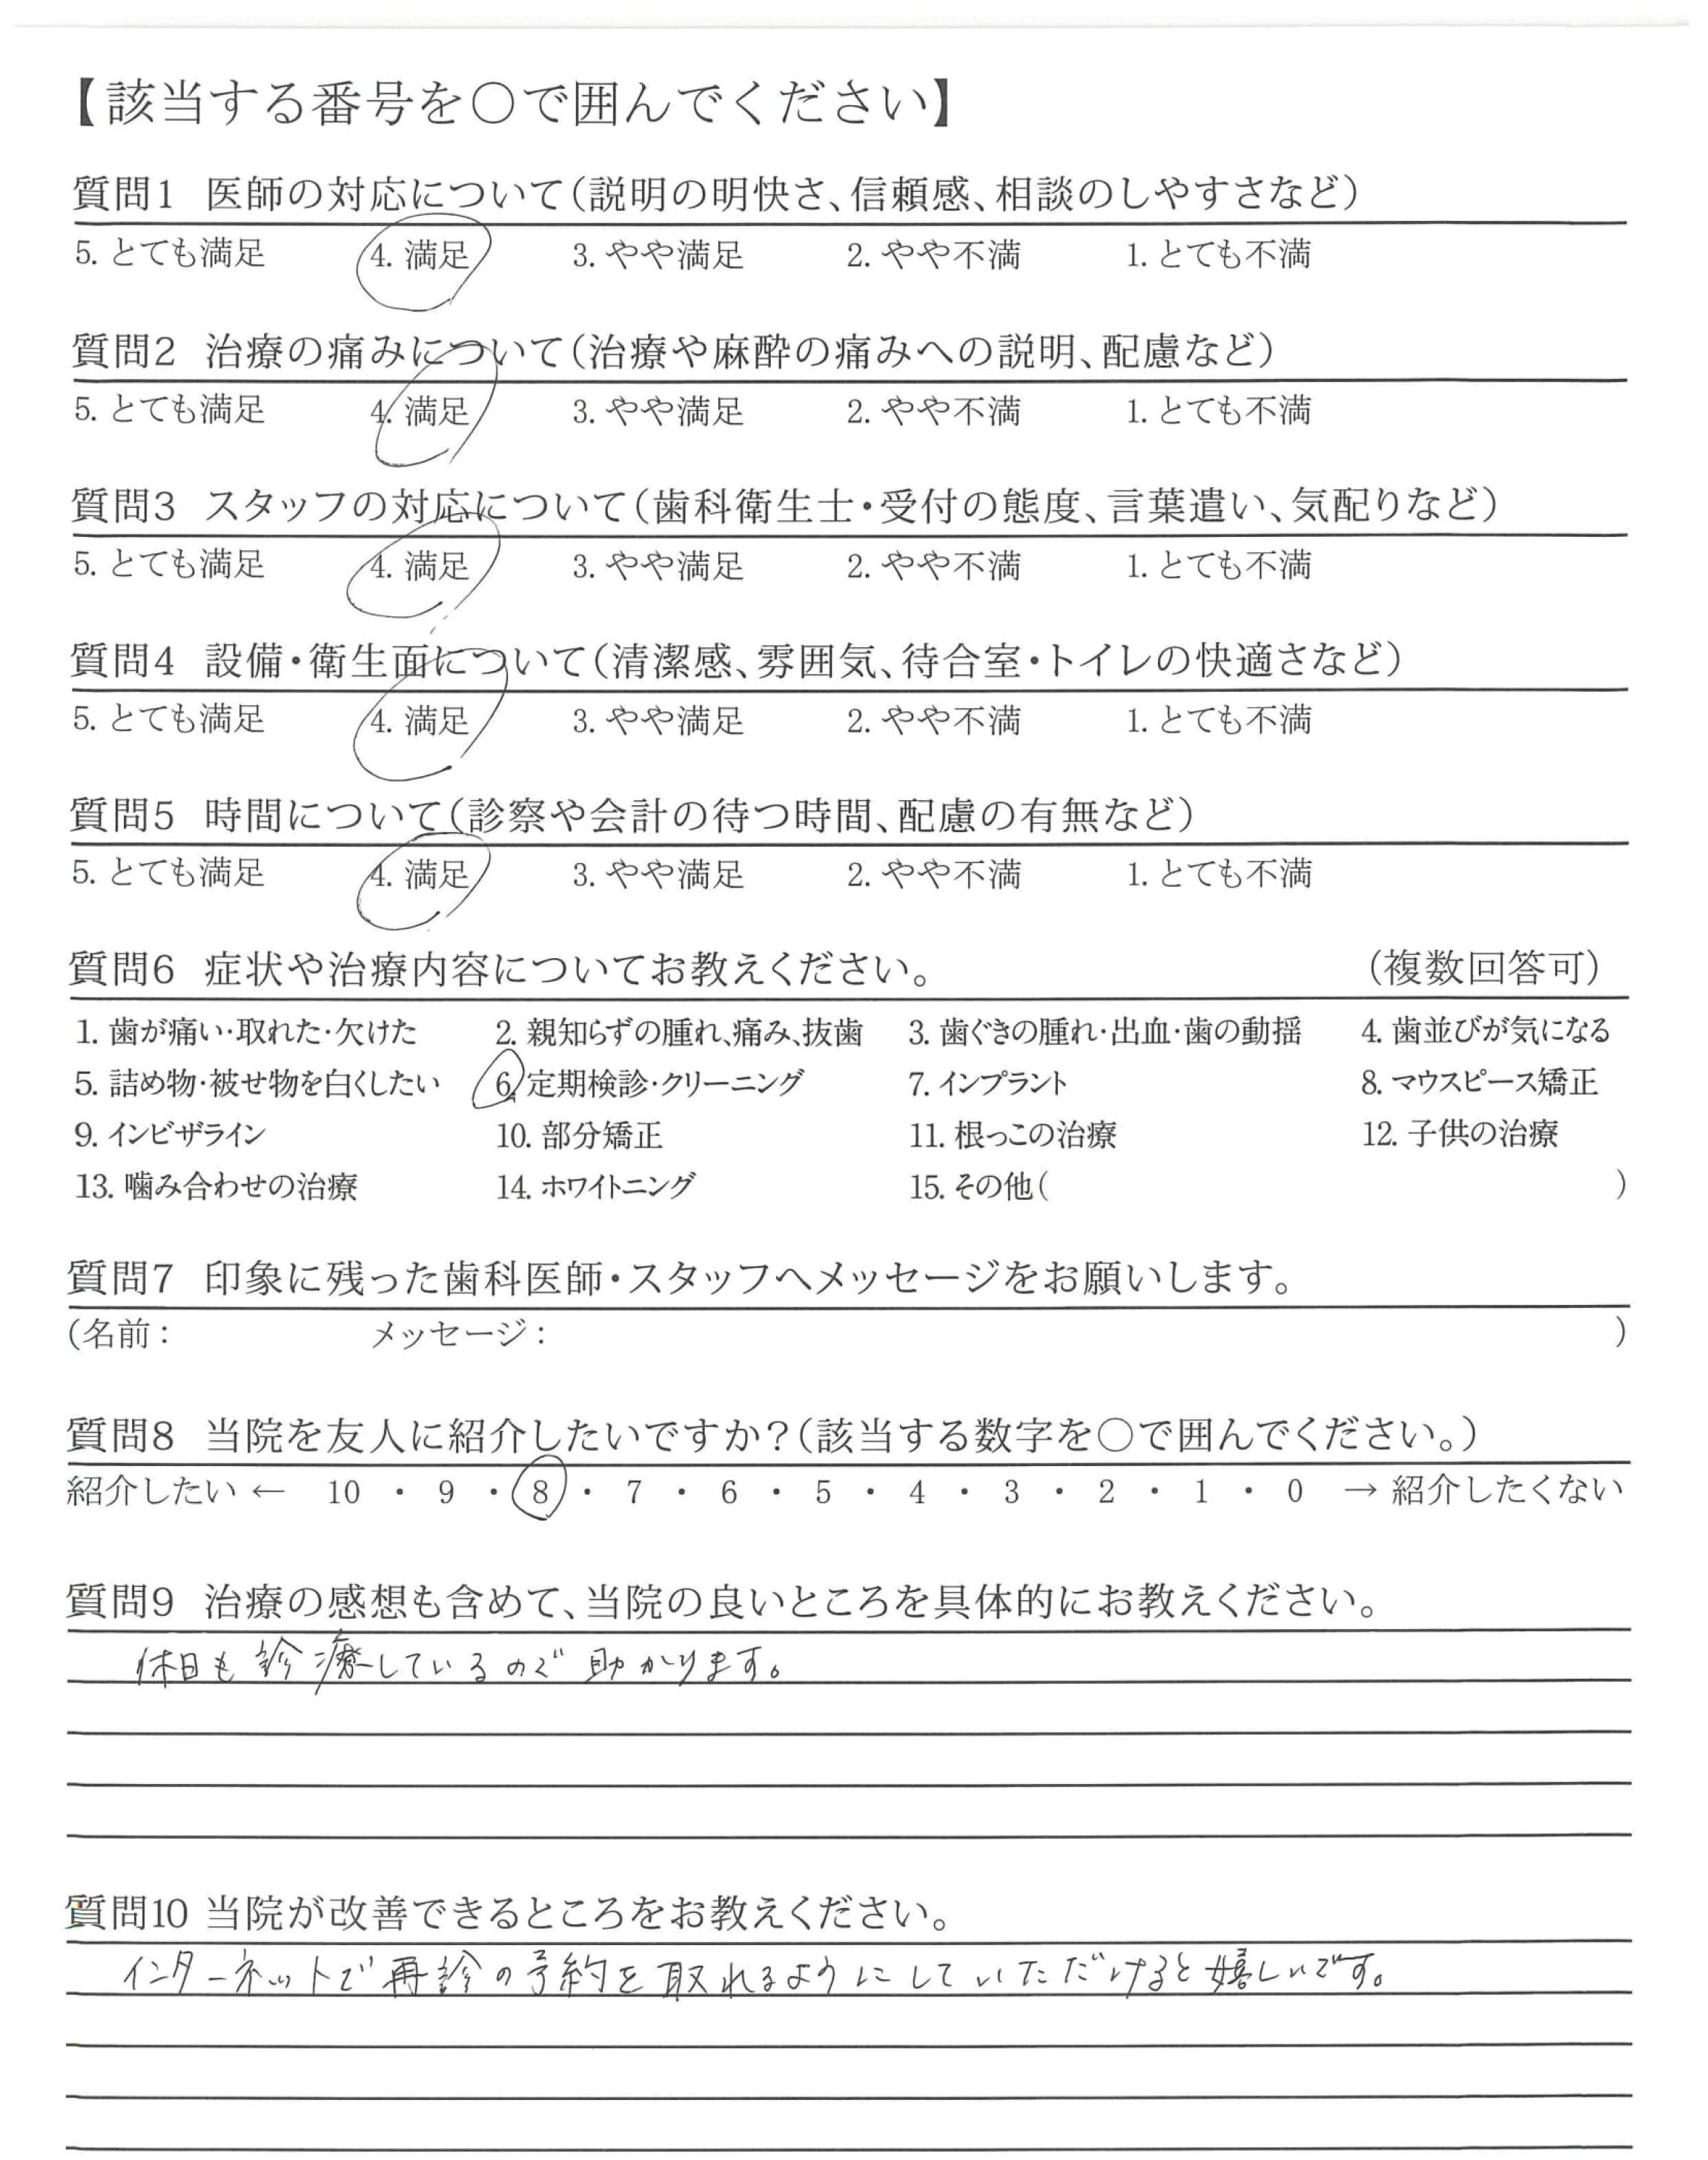 【該当する番号を〇で囲んでください】
質問1 医師の対応について(説明の明快さ、信頼感、相談のしやすさなど)
5. とても満足 4. 満足 3. やや満足 2. やや不満 1. とても不満
質問2 治療の痛みについて(治療や麻酔の痛みへの説明、配慮など)
5. とても満足 4. 満足 3. やや満足 2. やや不満 1. とても不満
質問3 スタッフの対応について(歯科衛生士・受付の態度、言葉遣い、気配りなど)
5. とても満足 4. 満足 3. やや満足 2. やや不満 1. とても不満
質問4 設備・衛生面について(清潔感、雰囲気、待合室・トイレの快適さなど)
5. とても満足 4. 満足 3. やや満足 2. やや不満 1. とても不満
質問5 時間について(診察や会計の待つ時間、配慮の有無など)
5. とても満足 4. 満足 3. やや満足 2. やや不満 1. とても不満
質問6 症状や治療内容についてお教えください。 (複数回答可)
1. 歯が痛い・取れた・欠けた 2. 親知らずの腫れ、痛み、抜歯 3. 歯ぐきの腫れ・出血・歯の動揺 4. 歯並びが気になる
5. 詰め物・被せ物を白くしたい 6. 定期検診・クリーニング 7. インプラント 8. マウスピース矯正
9. インビザライン 10. 部分矯正 11. 根っこの治療 12. 子供の治療
13. 噛み合わせの治療 14. ホワイトニング 15. その他( )
質問7 印象に残った歯科医師・スタッフへメッセージをお願いします。
(名前: メッセージ: )
質問8 当院を友人に紹介したいですか?(該当する数字を〇で囲んでください。)
紹介したい ← 10 ・ 9 ・ 8 ・ 7 ・ 6 ・ 5 ・ 4 ・ 3 ・ 2 ・ 1 ・ 0 → 紹介したくない
質問9 治療の感想も含めて、当院の良いところを具体的にお教えください。
休日も診療しているので助かります。
質問10 当院が改善できるところをお教えください。
インターネットで再診の予約を取れるようにしていただけると嬉しいです。